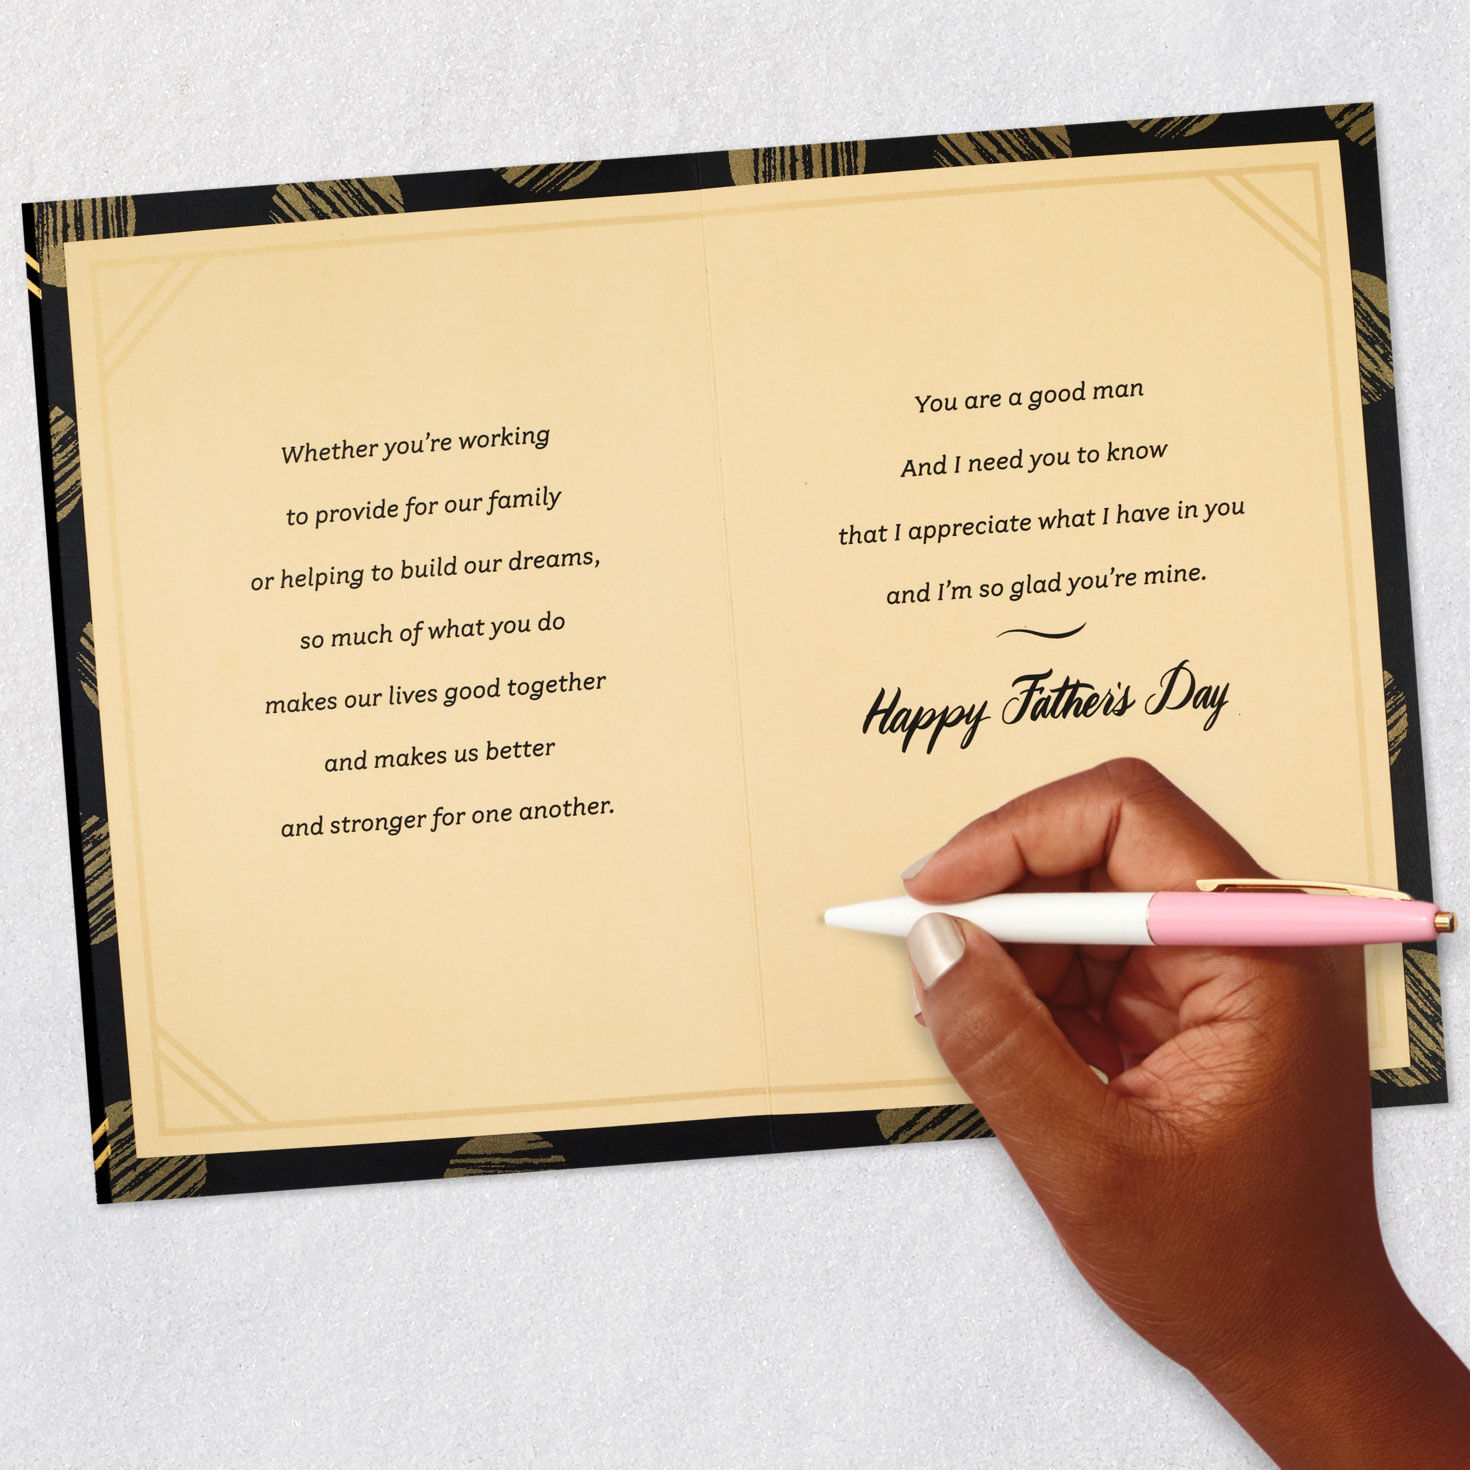 Whether you’re working
to provide for our family
or helping to build our dreams,
so much of what you do
makes our lives good together
and makes us better
and stronger for one another.
You are a good man
And I need you to know
that I appreciate what I have in you
and I’m so glad you’re mine.
Happy Father’s Day